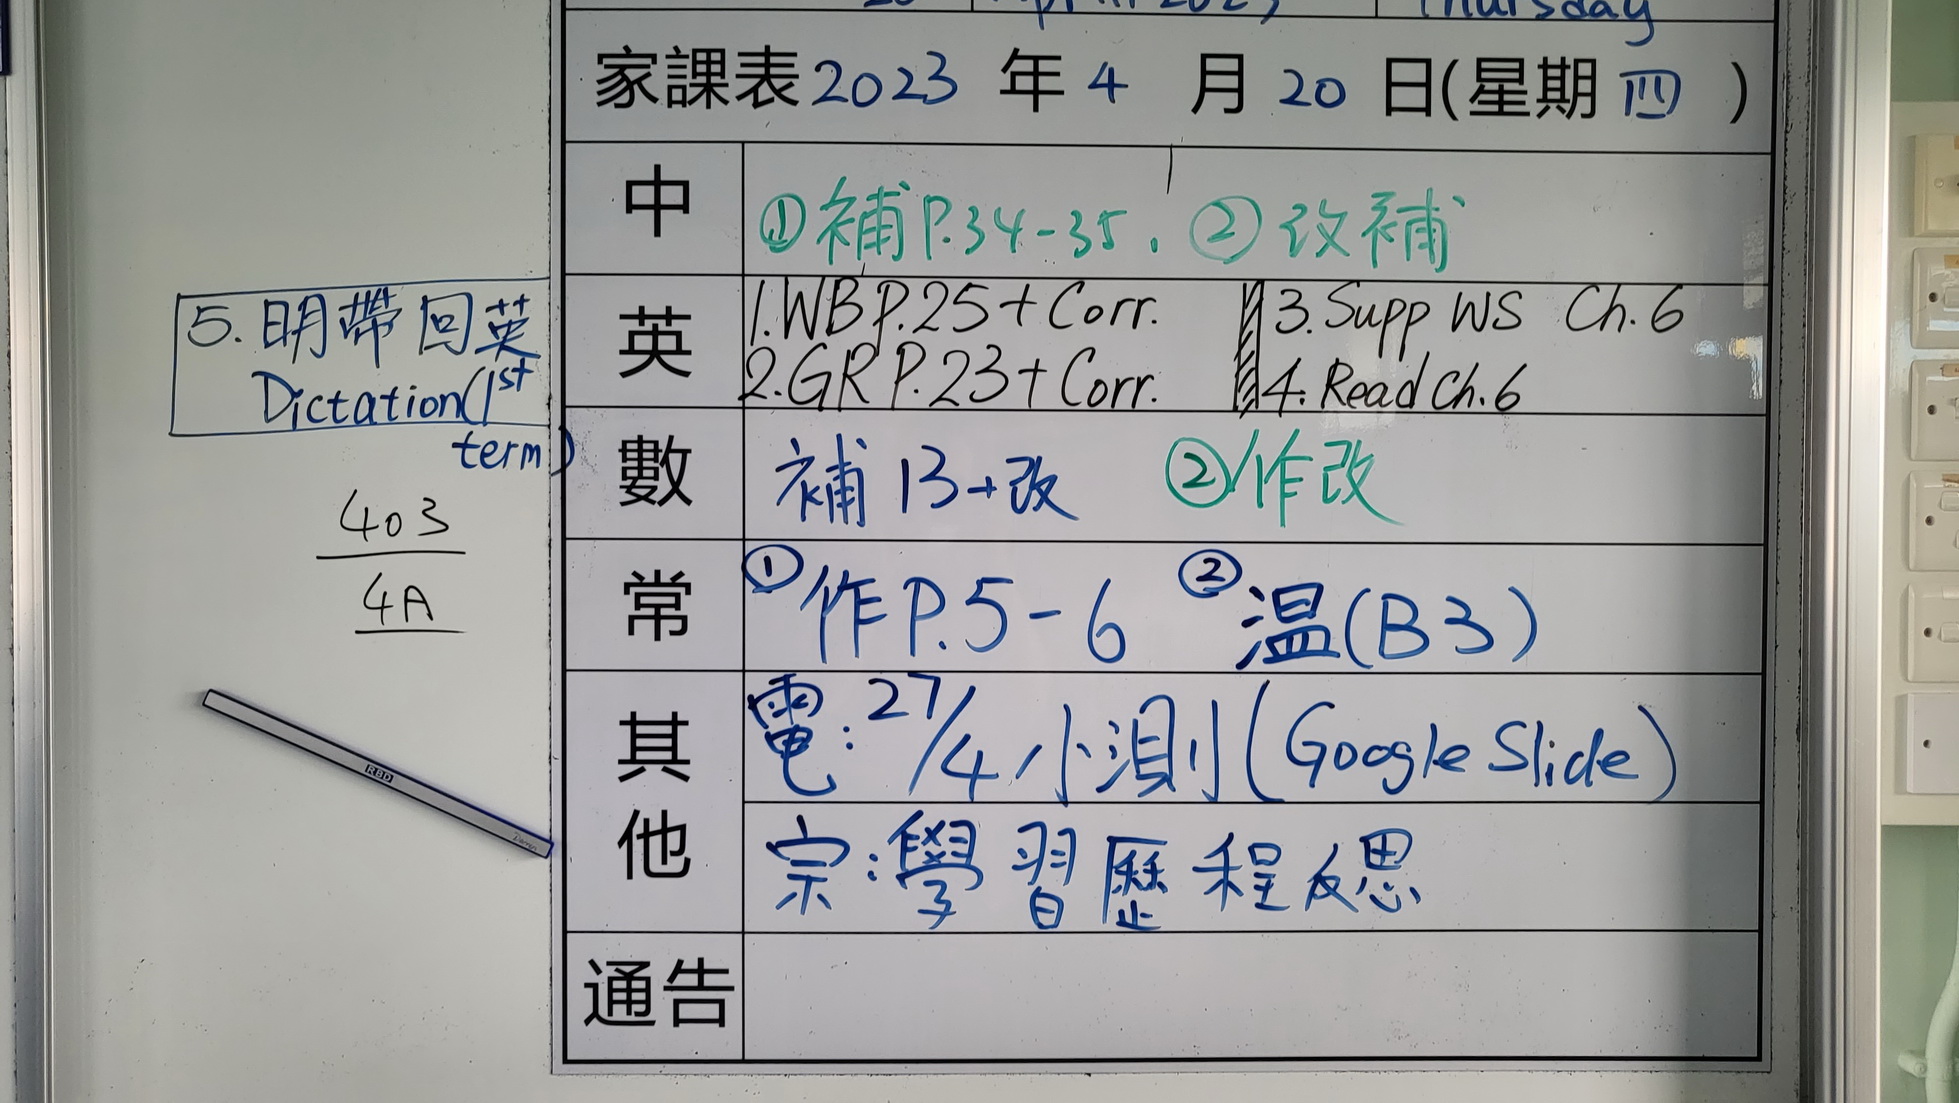 20 April 2023 Thursday
家課表2023年4月20日(星期四)
中 ①補P.34-35. ②改補
英 1.WB P.25+Corr. 3.Supp WS Ch.6
2.GR P.23+Corr. 4.Read Ch.6
5.明帶回英
Dictation(1st
term)
數 補13+改 ②作改
403
4A
常 ①作P.5-6 ②溫(B3)
其他
電:27/4小測(Google Slide)
宗:學習歷程反思
通告
RBD